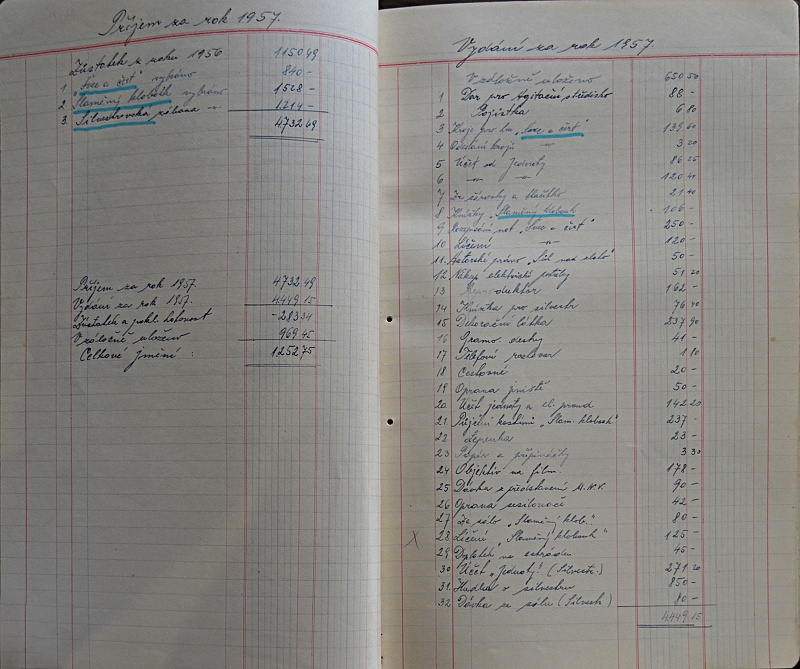 Příjem za rok 1957.
Zůstatek z roku 1956 1150 49
1. "Svec a čert" vybráno 840 -
2. Slaměný klobouk vybráno 1528 -
3. Silvestrovská zábava -"- 1214 -
4732 49
Příjem za rok 1957. 4732 49
Vydání za rok 1957. 4449 15
Zůstatek a pokl. hotovost - 283 34
V záložně uloženo 969 45
Celkové jmění : 1252 75
Vydání za rok 1957.
V záložně uloženo 650 50
1 Dar pro Agitační středisko 88 -
2 Pojistka 6 80
3 Kroje pro hru "Svec a čert" 139 60
4 Odeslání krojů -"- 3 20
5 Účet od Jednoty 86 25
6 -"- -"- 120 40
7 Za žárovky a 21 40
8 Knížky "Slaměný klobouk" 106 -
9 Rozepsání not "Svec a čert" 250 -
10 Líčení -"- 120 -
11. Autorské právo "Sůl nad zlato" 50 -
12 Nákup elektrické potřeby 51 20
13 162 -
14 Knížka pro silvestr 76 40
15 Dekorační látka 237 90
16 Gramo desky 41 -
17 Telefoní rozhovor 1 80
18 Cestovné 20 -
19 Oprava jeviště 50 -
20. Účet jednoty a el. proud 142 20
21. Půjčení kostimů "Slam. klobouk" 237 -
22 Lepenka 23 -
23 Papír a připínáčky 3 30
24 Objektiv na film. 178 -
25 Dávka z představení M.N.V. 90 -
26 Oprava zesilovače 42 -
27 Za sálo "Slaměný klob." 80 -
X 28 Líčení "Slaměný klobouk" 125 -
29 Doplatek na 45 -
30 Účet "Jednoty" (Silvestr.) 271 20
31. Hudba o silvestru 850 -
32 Dávka ze sálu (Silvestr) 80 -
4449 15